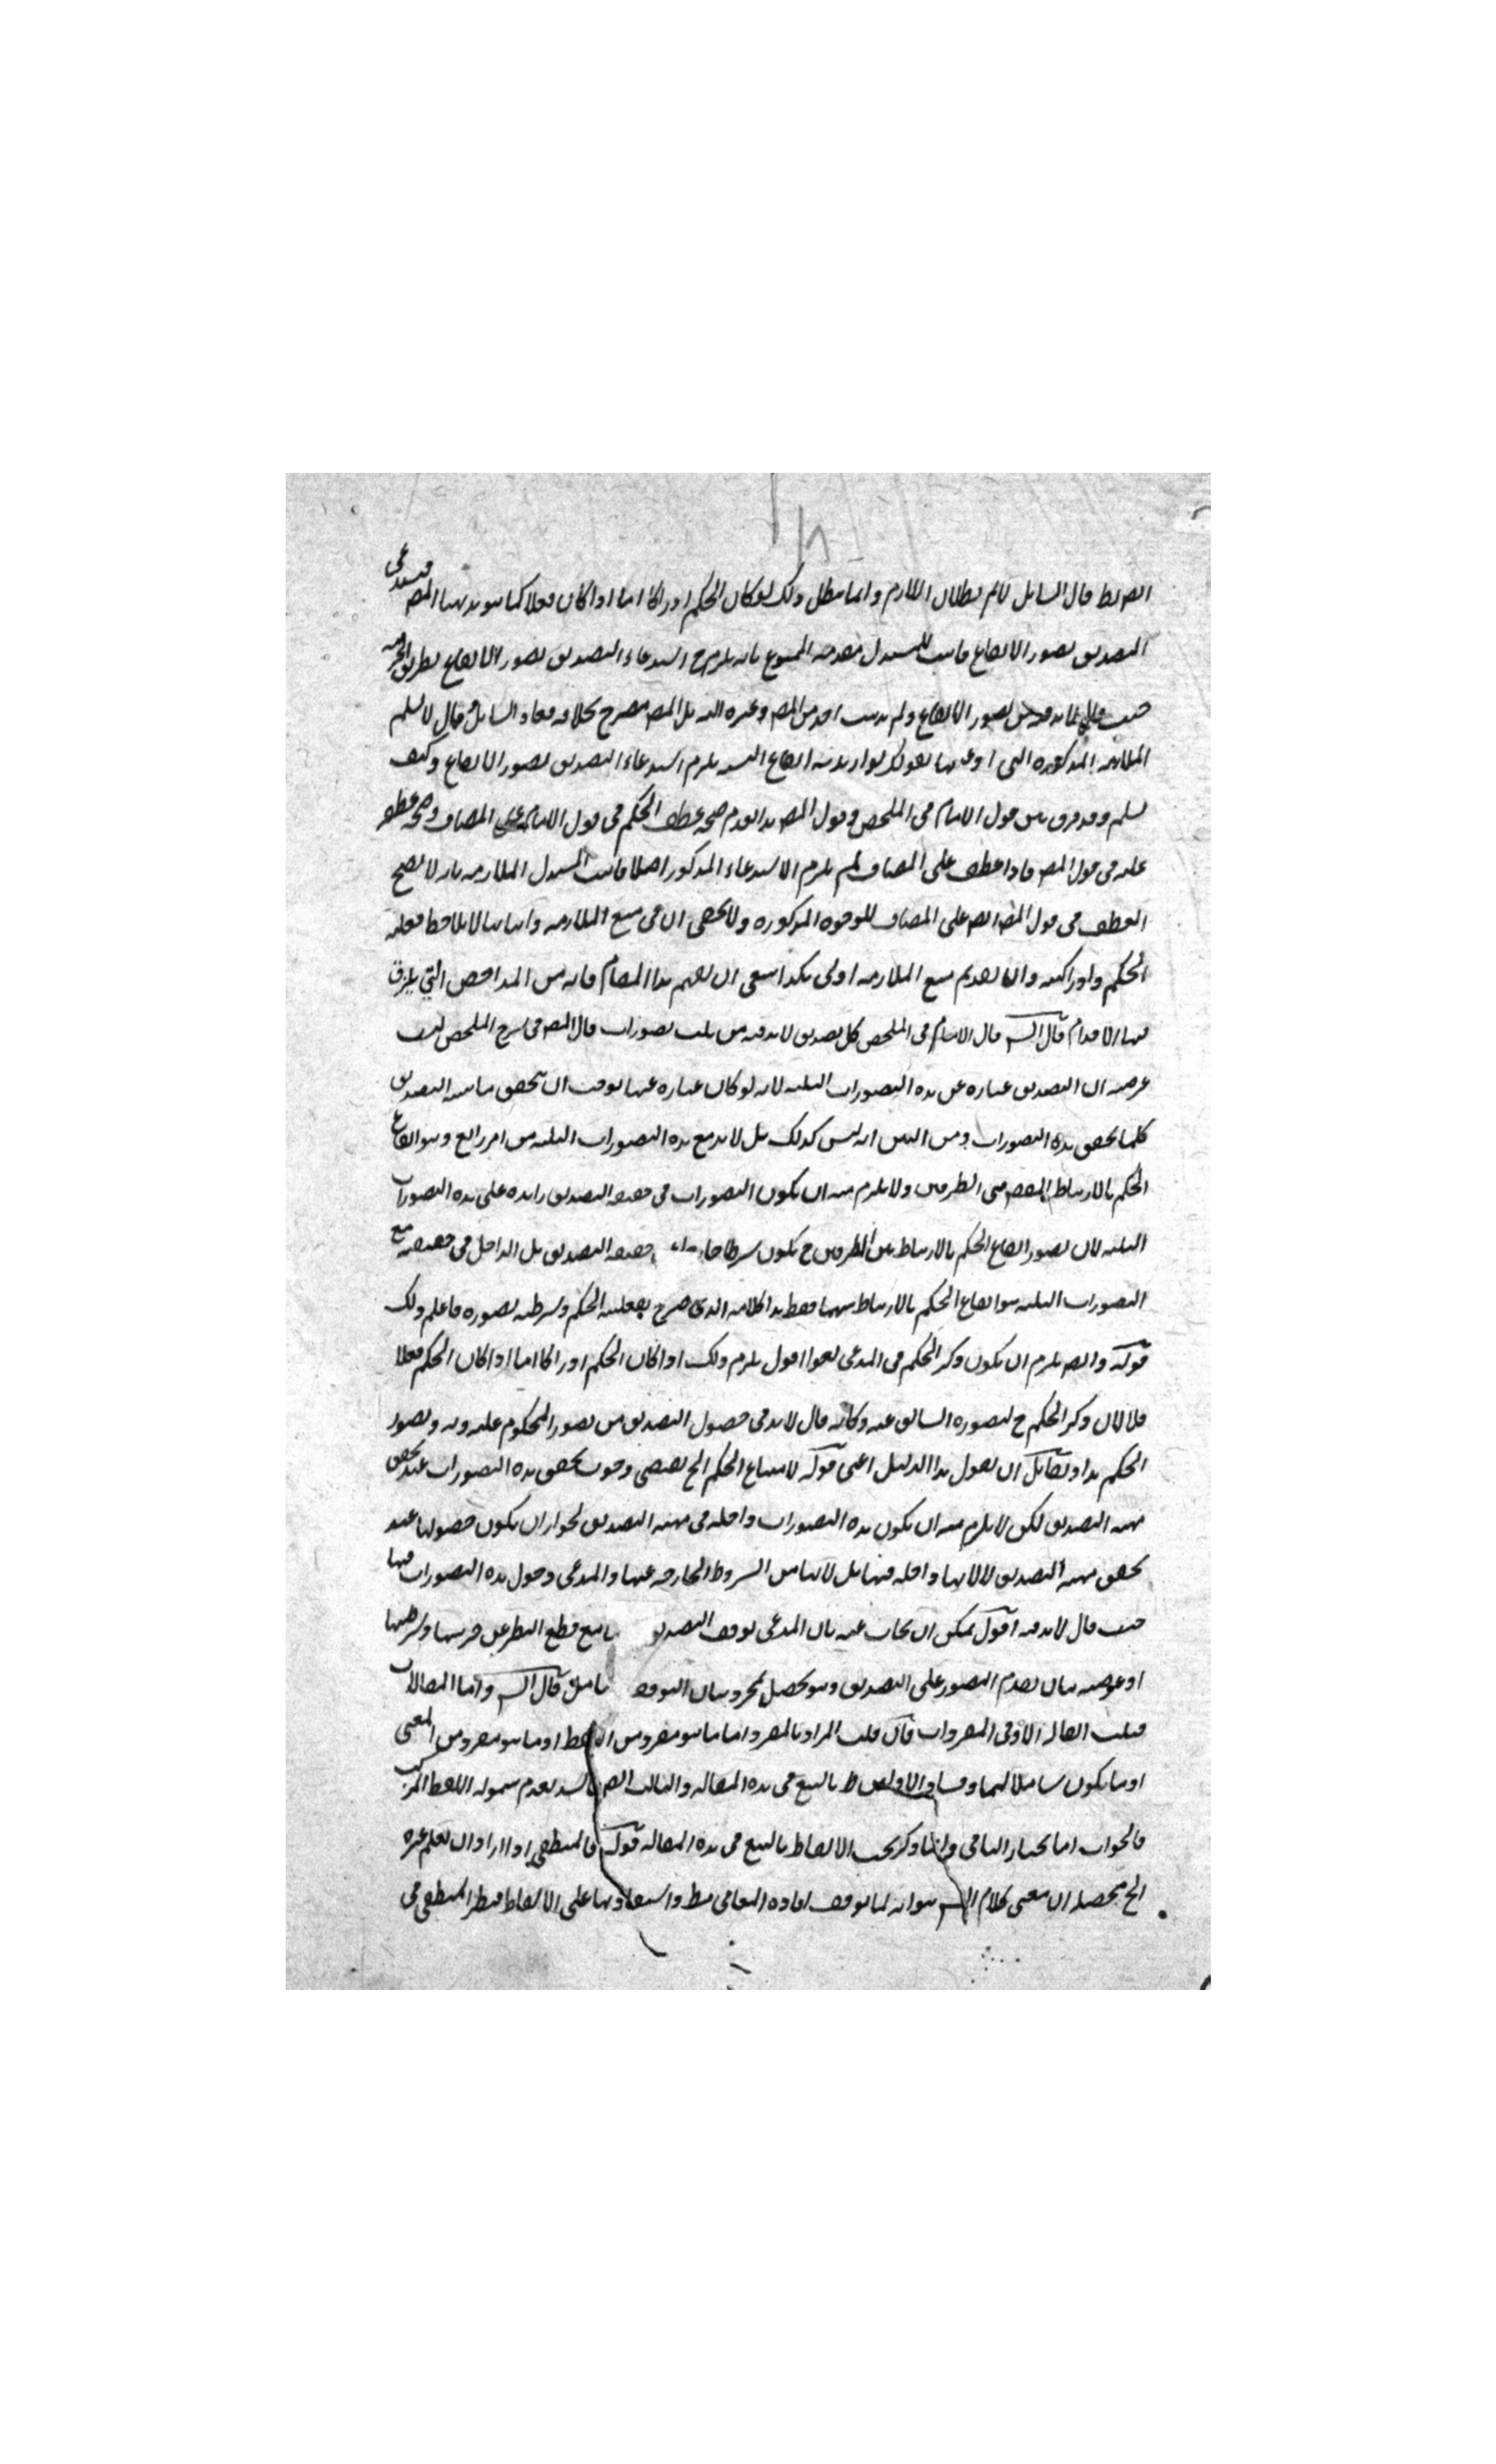 الضابط قال السايل لانم بطلان اللازم وانما يبطل ذلك لو كان الحكم ادراكا اما اذا كان فعلا كما هو مذهب المص فيستدعى
التصديق تصور الايقاع فاثبت المستدل مقدمته الممنوع بانه يلزم ح استدعاء التصديق تصور الايقاع بطريق
حيث قال لابد فيه من تصور الايقاع ولم يذهب احد من المص وغيره اليه بل المص مصرح بخلافه فعاد السايل وقال لا نسلم
الملازمة المذكورة التى ادعيتها بقولك لو اريد به ايقاع النسبة يلزم استدعاء التصديق تصور الايقاع وكيف
نسلم وقد فرق بين قول الامام فى الملخص وقول المص هذا لعدم صحة عطف الحكم فى قول الامام على المضاف وصحة عطفه
عليه فى قول المص فاذا عطف على المضاف لم يلزم الاستدعاء المذكور اصلا فاثبت المستدل الملازمة بانه لا يصح
العطف فى قول المص ايضا على المضاف للوجوه المذكورة ولا يخفى ان فى منع الملازمة واثباتها لا يلاحظ فعلية
الحكم وادراكيته وان تقديم منع الملازمة اولى هكذا ينبغى ان يفهم هذا المقام فانه من المداحض التي يزلق
فيها الاقدام قال الش قال الامام فى الملخص كل تصديق لابد فيه من ثلث تصورات قال المص فى شرح الملخص ليس
غرضه ان التصديق عبارة عن هذه التصورات الثلثة لانه لو كان عبارة عنها لوجب ان يتحقق ماهية التصديق
كلما يتحقق هذه التصورات ومن البين انه ليس كذلك بل لابد مع هذه التصورات الثلثة من امر رابع وهو ايقاع
الحكم بالارتباط بين الطرفين ولا يلزم منه ان يكون التصورات فى حقيقة التصديق زايدة على هذه التصورات
الثلثة لان تصور ايقاع الحكم بالارتباط بين الطرفين ح يكون شرطا خارجا حقيقة التصديق بل الداخل فى حقيقته مع
التصورات الثلثة هو ايقاع الحكم بالارتباط بينهما فقط هذا كلامه الذى صرح بفعلية الحكم وشرطية تصوره فاعلم ذلك
قوله وايضا يلزم ان يكون ذكر الحكم فى المدعى لغوا اقول يلزم ذلك اذا كان الحكم ادراكا اما اذا كان الحكم فعلا
فلا لان ذكر الحكم ح لتصوره السابق عنه وكانه قال لابد فى حصول التصديق من تصور المحكوم عليه وبه وتصور
الحكم هذا ولقائل ان يقول هذا الدليل اعنى قوله لامتناع الحكم الخ يقتضى وجوب تحقق هذه التصورات عند تحقق
مهية التصديق لكن لا يلزم منه ان يكون هذه التصورات داخلة فى مهية التصديق لجواز ان يكون حصولها عند
تحقق مهية التصديق لا لانها داخلة فيها بل لانها من الشروط الخارجة عنها والمدعى دخول هذه التصورات فيها
حيث قال لابد فيه اقول يمكن ان يجاب عنه بان المدعى توقف التصديق مع قطع النظر عن جزئيتها وشرطيتها
او غرضه بيان تقدم التصور على التصديق وهو يحصل بمجرد بيان التوقف تامل قال الش واما المقالات
فثلث المقالة الاولى المفردات فان قلت المراد بالمفرد اما ما هو مفرد من اللفظ او ما هو مفرد من المعنى
او ما يكون شاملا لهما وفساد الاولين ظ بالتتبع فى هذه المقالة والثالث ايضا فاسد لعدم شموله اللفظ المركب
فالجواب اما نختار الثانى وانما ذكر بحث الالفاظ بالتبع فى هذه المقالة قوله فالمنطقى اذا اراد ان يعلم غيره
الخ محصله ان معنى كلام الش هو انه لما توقف افادة المعانى واستفادتها على الالفاظ فنظر المنطقى فى